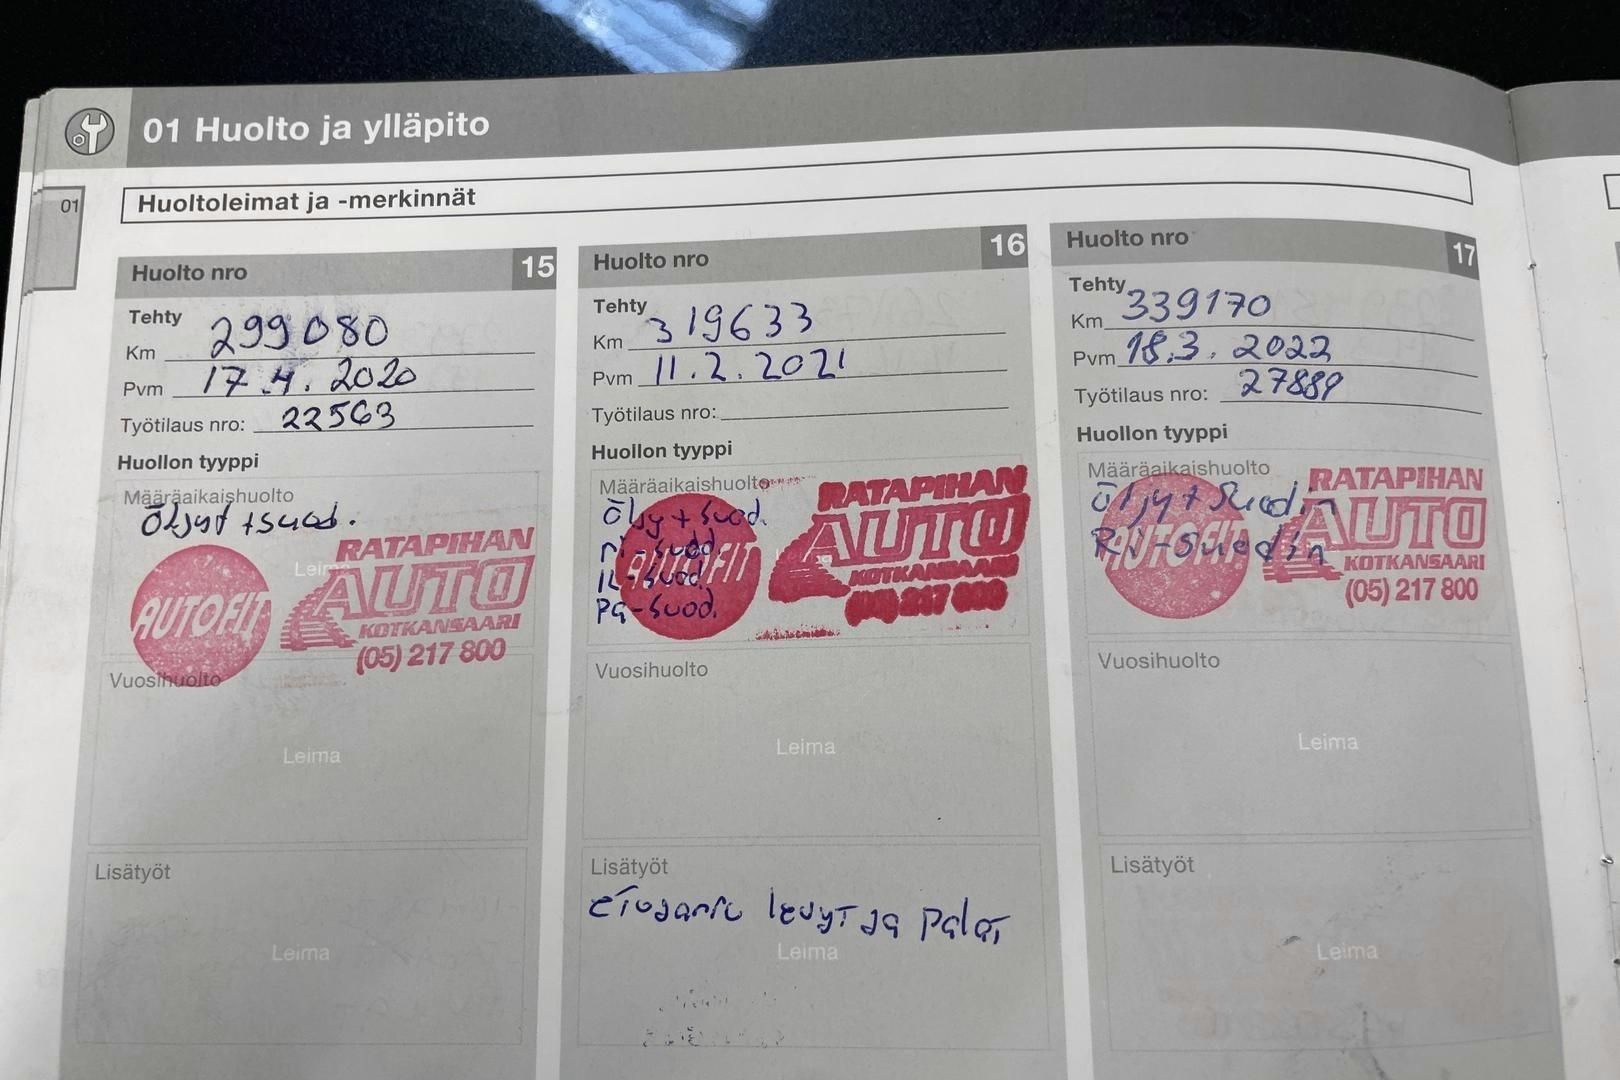 01 Huolto ja ylläpito
01
Huoltoleimat ja -merkinnät
Huolto nro 15
Tehty
Km 299080
Pvm 17.4.2020
Työtilaus nro: 22563
Huollon tyyppi
Määräaikaishuolto
Öljyt + suod.
Leima
AUTOFIT
RATAPIHAN
AUTO
KOTKANSAARI
(05) 217 800
Vuosihuolto
Leima
Lisätyöt
Leima
Huolto nro 16
Tehty
Km 319633
Pvm 11.2.2021
Työtilaus nro:
Huollon tyyppi
Määräaikaishuolto
Öljy + suod.
Ri-suod.
IL-suod.
Pa-suod.
AUTOFIT
RATAPIHAN
AUTO
KOTKANSAARI
(05) 217 800
Vuosihuolto
Leima
Lisätyöt
etujarru levyt ja palat
Leima
Huolto nro 17
Tehty
Km 339170
Pvm 18.3.2022
Työtilaus nro: 27889
Huollon tyyppi
Määräaikaishuolto
Öljy + Suodin
Ri-Suodin
AUTOFIT
RATAPIHAN
AUTO
KOTKANSAARI
(05) 217 800
Vuosihuolto
Leima
Lisätyöt
Leima